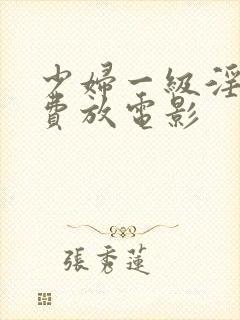 少婦一級淫
費放電影
張秀蓮